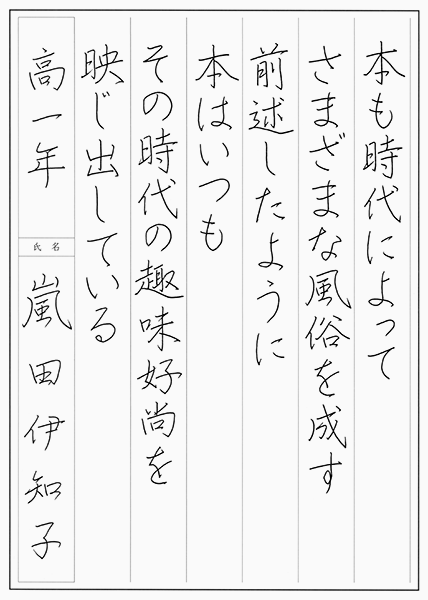 本も時代によって
さまざまな風俗を成す
前述したように
本はいつも
その時代の趣味好尚を
映じ出している
高一年
氏名
嵐田伊知子